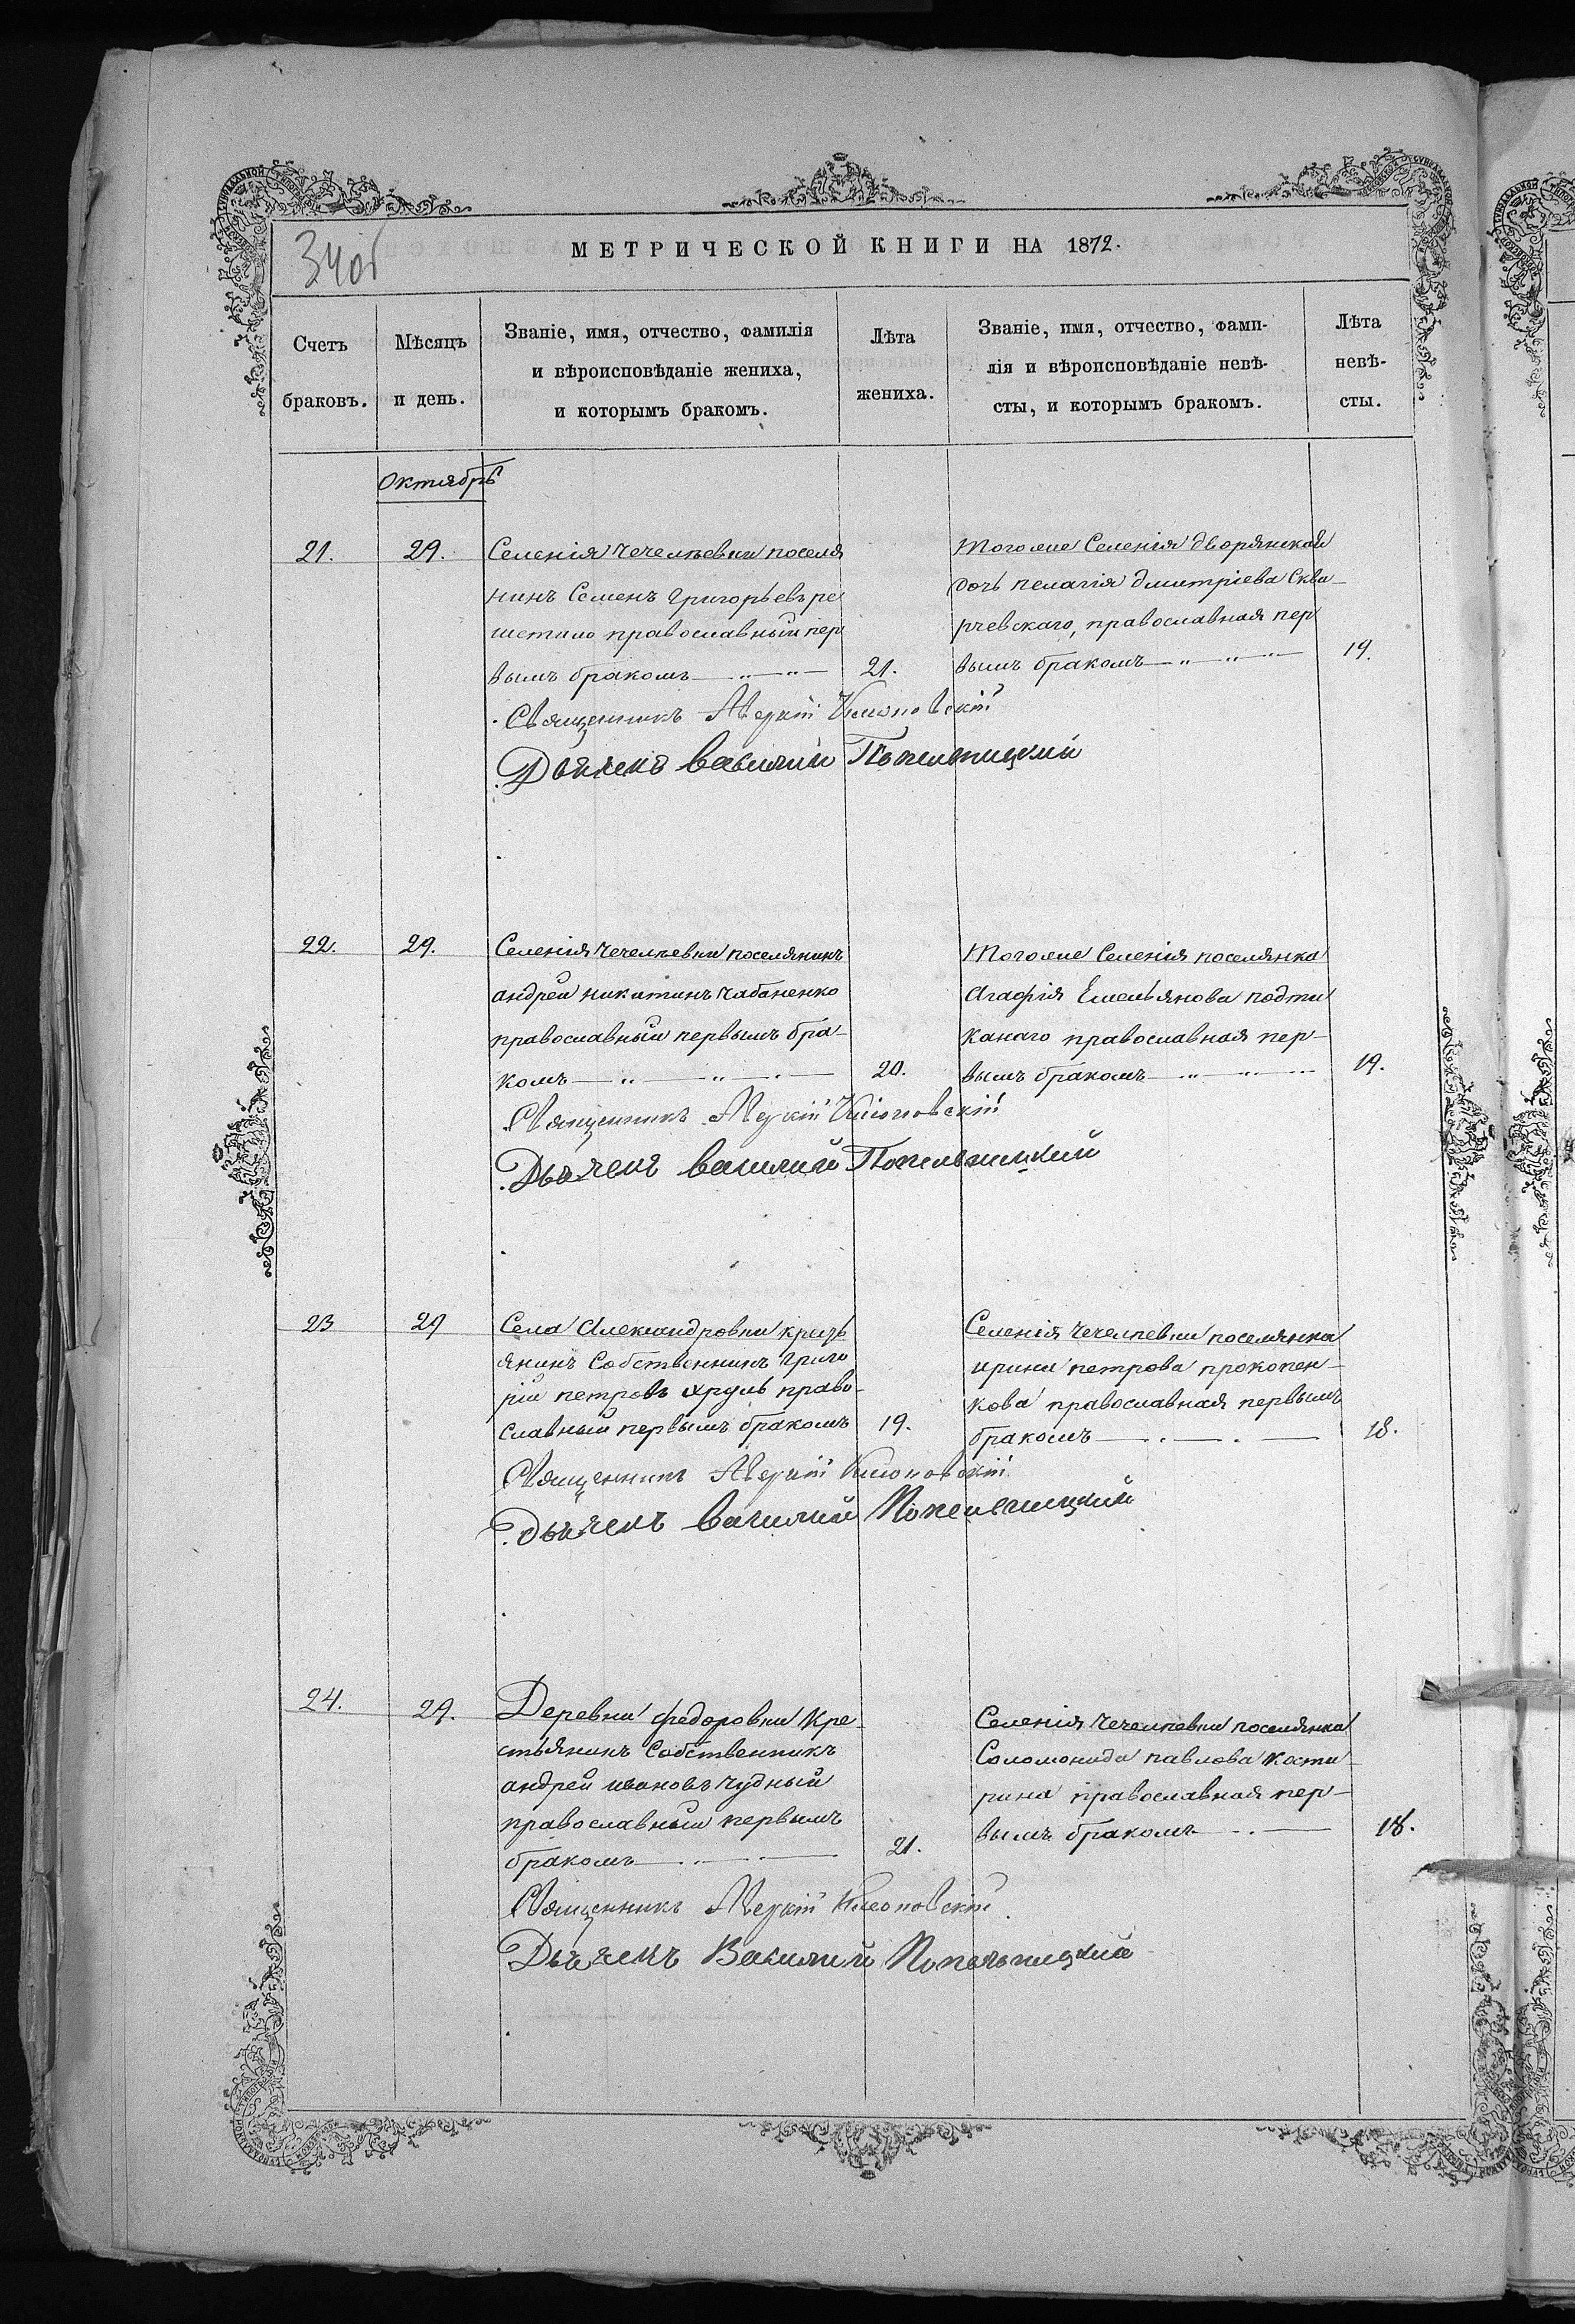 34об
МЕТРИЧЕСКОЙ КНИГИ НА 1872.
Счетъ браковъ.
Мѣсяцъ и день.
Званіе, имя, отчество, фамилія
и вѣроисповѣданіе жениха,
и которымъ бракомъ.
Лѣта жениха.
Званіе, имя, отчество, фами-
лія и вѣроисповѣданіе невѣ-
сты, и которымъ бракомъ.
Лѣта невѣ-
сты.
Октябрь
21.
29.
Селенія Чечелѣевки поселя
нинъ Семенъ Григорьевъ ре
шетило православный пер
вымъ бракомъ
21.
Тогоже Селенія дворянской
дочь пелагія дмитріева Скви-
рчевскаго, православная пер
вымъ бракомъ
19.
Священникъ Аверкій
Дьячекъ Василий Попельницкий
22.
29.
Селенія Чечелѣевки поселянинъ
андрей никитинъ Чабаненко
православный первымъ бра-
комъ
20.
Тогоже Селенія поселянка
Агафія Емельянова подти
канаго православная пер-
вымъ бракомъ
19.
Священникъ Аверкій
Дьячекъ василий Попельницкий
23
29
Села Александровки кресть
янинъ Собственникъ Григо
рій петровъ хруль право-
славный первымъ бракомъ
19.
Селенія Чечелѣевки поселянка
ирина петрова прокопен-
кова православная первымъ
бракомъ
18.
Священникъ Аверкій
Дьячекъ василий Попельницкий
24.
29.
Деревни федоровки Кре-
стьянинъ Собственникъ
андрей ивановъ чудный
православный первымъ
бракомъ
21.
Селенія Чечелѣевки поселянка
Соломонида павлова Кости-
рина православная пер-
вымъ бракомъ
18.
Священникъ Аверкій
Дьячекъ Василий Попельницкий